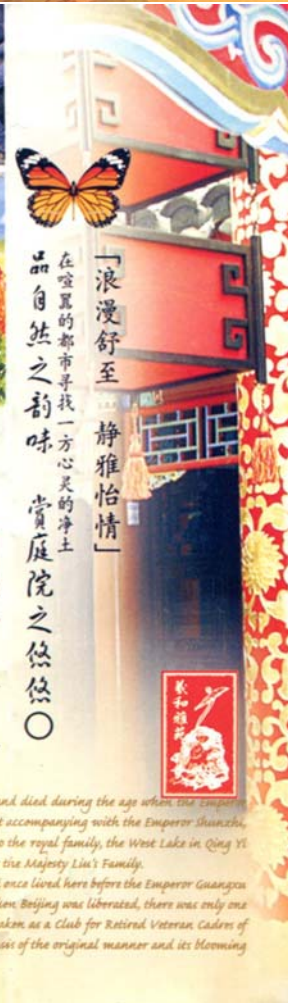 「浪漫舒至 静雅怡情」
在喧嚣的都市寻找一方心灵的净土
品自然之韵味 賞庭院之悠悠○
羲和雅苑
nd died during the age when the Emperor
t accompanying with the Emperor Shunzhi,
o the royal family, the West Lake in Qing Yi
the Majesty Liu's Family.
once lived here before the Emperor Guangxu
en Beijing was liberated, there was only one
aken as a Club for Retired Veteran Cadres of
sis of the original manner and its blooming